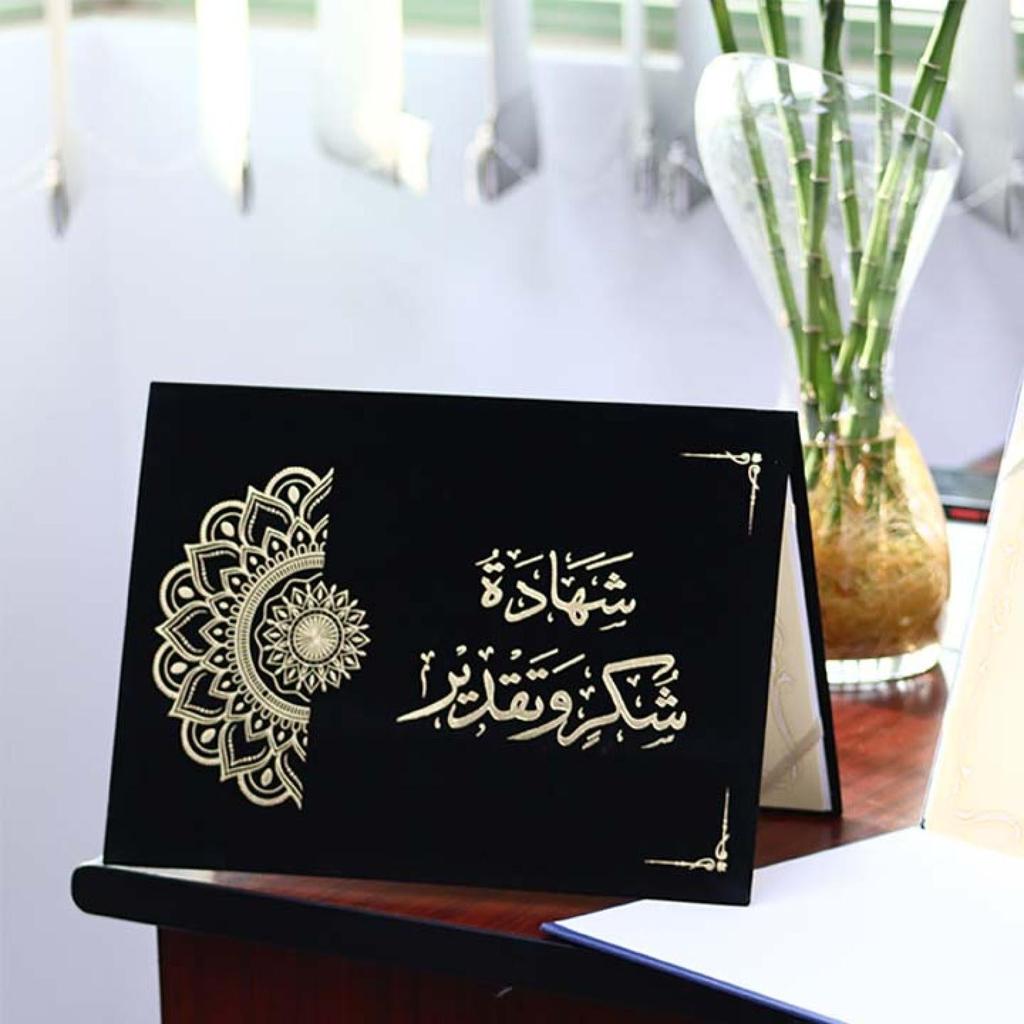 شَهَادَةُ
شُكرٍ وَتَقْدِيْرٍ